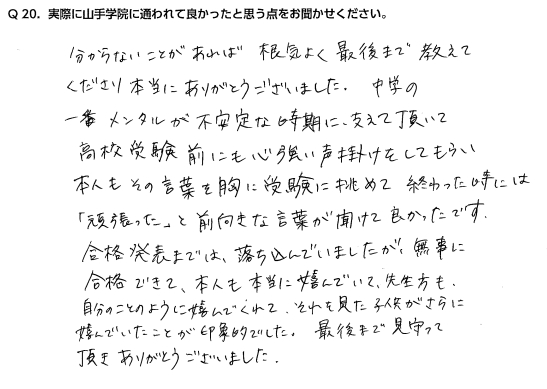 Q 20. 実際に山手学院に通われて良かったと思う点をお聞かせください。
分からないことがあれば 根気よく 最後まで 教えて
くださり 本当に ありがとうございました. 中学の
一番 メンタルが 不安定な 時期に、支えて 頂いて
高校受験 前にも 心強い 声掛けをしてもらい
本人も その言葉を胸に 受験に挑めて 終わった時には
「頑張った」と 前向きな 言葉が聞けて 良かったです.
合格発表までは、落ち込んでいましたが、無事に
合格できて、本人も 本当に 嬉んでいて、先生方も.
自分のことのように嬉んでくれて. それを見た子供がさらに
嬉んでいたことが印象的でした. 最後まで 見守って
頂き ありがとうございました.